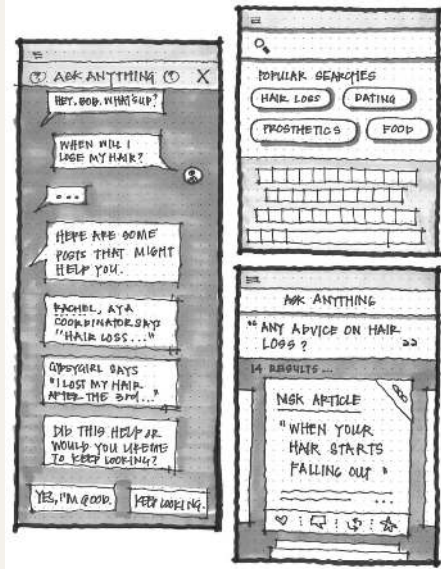 ASK ANYTHING
X
HEY, BOB. WHAT'S UP?
WHEN WILL I
LOSE MY HAIR?
...
HERE ARE SOME
POSTS THAT MIGHT
HELP YOU.
RACHEL, AYA
COORDINATOR SAYS
"HAIR LOSS..."
GYPSYGIRL SAYS
"I LOST MY HAIR
AFTER THE 3RD..."
DID THIS HELP OR
WOULD YOU LIKE ME
TO KEEP LOOKING?
YES, I'M GOOD.
KEEP LOOKING.
POPULAR SEARCHES
HAIR LOSS
DATING
PROSTHETICS
FOOD
ASK ANYTHING
"ANY ADVICE ON HAIR
LOSS?"
14 RESULTS...
MSK ARTICLE
"WHEN YOUR
HAIR STARTS
FALLING OUT"
...